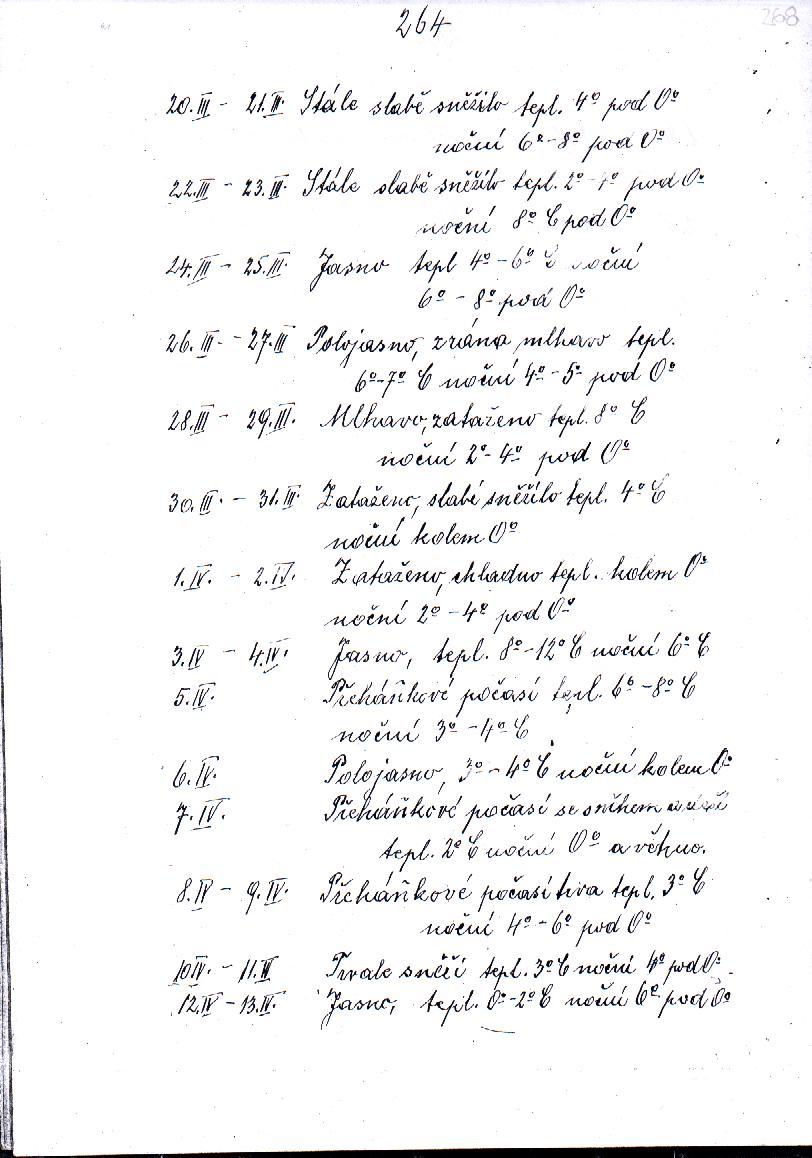 268
264
20.III - 21.III. Stále slabě sněžilo tepl. 4° pod 0°
noční 6°-8° pod 0°
22.III - 23.III. Stále slabě sněžilo tepl. 2°-4° pod 0°
noční 8° C pod 0°
24.III - 25.III. Jasno tepl 4°-6° C noční
6° - 8° pod 0°
26.III. - 27.III Polojasno, zrána mlhavo tepl.
6°-7° C noční 4°-5° pod 0°
28.III - 29.III. Mlhavo, zataženo tepl. 8° C
noční 2°-4° pod 0°
30.III. - 31.III. Zataženo, slabě sněžilo tepl. 4° C
noční kolem 0°
1.IV. - 2.IV. Zataženo, chladno tepl. kolem 0°
noční 2° -4° pod 0°
3.IV - 4.IV. Jasno, tepl. 8°-12° C noční 6° C
5.IV. Přeháňkové počasí tepl. 6° -8° C
noční 3° -4° C
6.IV. Polojasno, 3° -4° C noční kolem 0°
7.IV. Přeháňkové počasí se sněhem a
tepl. 2° C noční 0° a větrno.
8.IV - 9.IV. Přeháňkové počasí trva tepl. 3° C
noční 4° -6° pod 0°
10IV. - 11.IV Trvale sněží tepl. 3° C noční 4° pod 0°
12.IV - 13.IV. Jasno, tepl. 0°-2° C noční 6° pod 0°